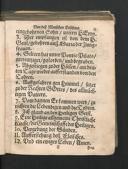 Von deß Menschen Erlösung
gebohrnen Sohn / unsern HErrn.
3. Der empfangen ist von dem H.
Geist, gebohren aus Maria der Jung-
frauen.
4. Gelitten hat unter Pontio Pilato /
gecreutziget / gestorben / und begraben.
5. Abgestiegen zu der Höllen / am drit-
ten Tage wieder aufferstanden von den
Todten.
6. Auffgefahren gen Himmel / sitzet
zu der Rechten GOttes / deß allmächti-
gen Vatters.
7. Von dannen Er kommen wird / zu
richten die Lebendigen und die Todten.
8. Ich glaube an den Heiligen Geist.
9. Eine Heilige allgemeine Christliche
Kirche / die Gemeinschafft der Heiligen.
10. Vergebung der Sünden.
11. Aufferstehung deß Fleisches.
12. Und ein ewiges Leben / Amen.